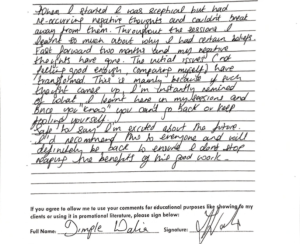 When I started I was sceptical but had
re-occurring negative thoughts and couldn't break
away from them. Throughout the sessions I
learnt so much about why I had certain beliefs.
Fast forward two months and my negative
thoughts have gone. The initial issues (not
feeling good enough, comparing myself) have
transformed. This is mainly because if such
thought comes up, I'm instantly reminded
of what I learnt here in my sessions and
once you "know" you can't go back or keep
fooling yourself.
Safe to say I'm excited about the future.
I'd recommend this to everyone and will
definitely be back to ensure I don't stop
reaping the benefits of this good work.
If you agree to allow me to use your comments for educational purposes like showing to my
clients or using it in promotional literature, please sign below:
Full Name: Dimple Walia Signature: